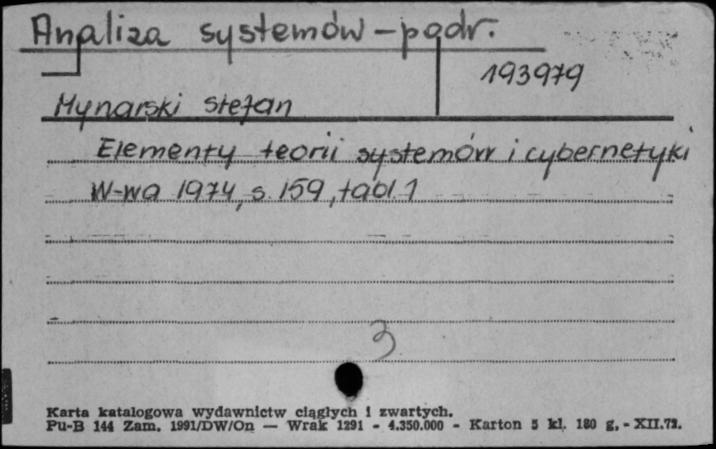 Analiza systemów - podr.
193979
Mynarski Stefan
Elementy teorii systemów i cybernetyki
W-wa 1974, s. 159, tabl. 1
3
Karta katalogowa wydawnictw ciągłych i zwartych.
Pu-B 144 Zam. 1991/DW/On — Wrak 1291 - 4.350.000 - Karton 5 kl. 180 g. - XII.72.